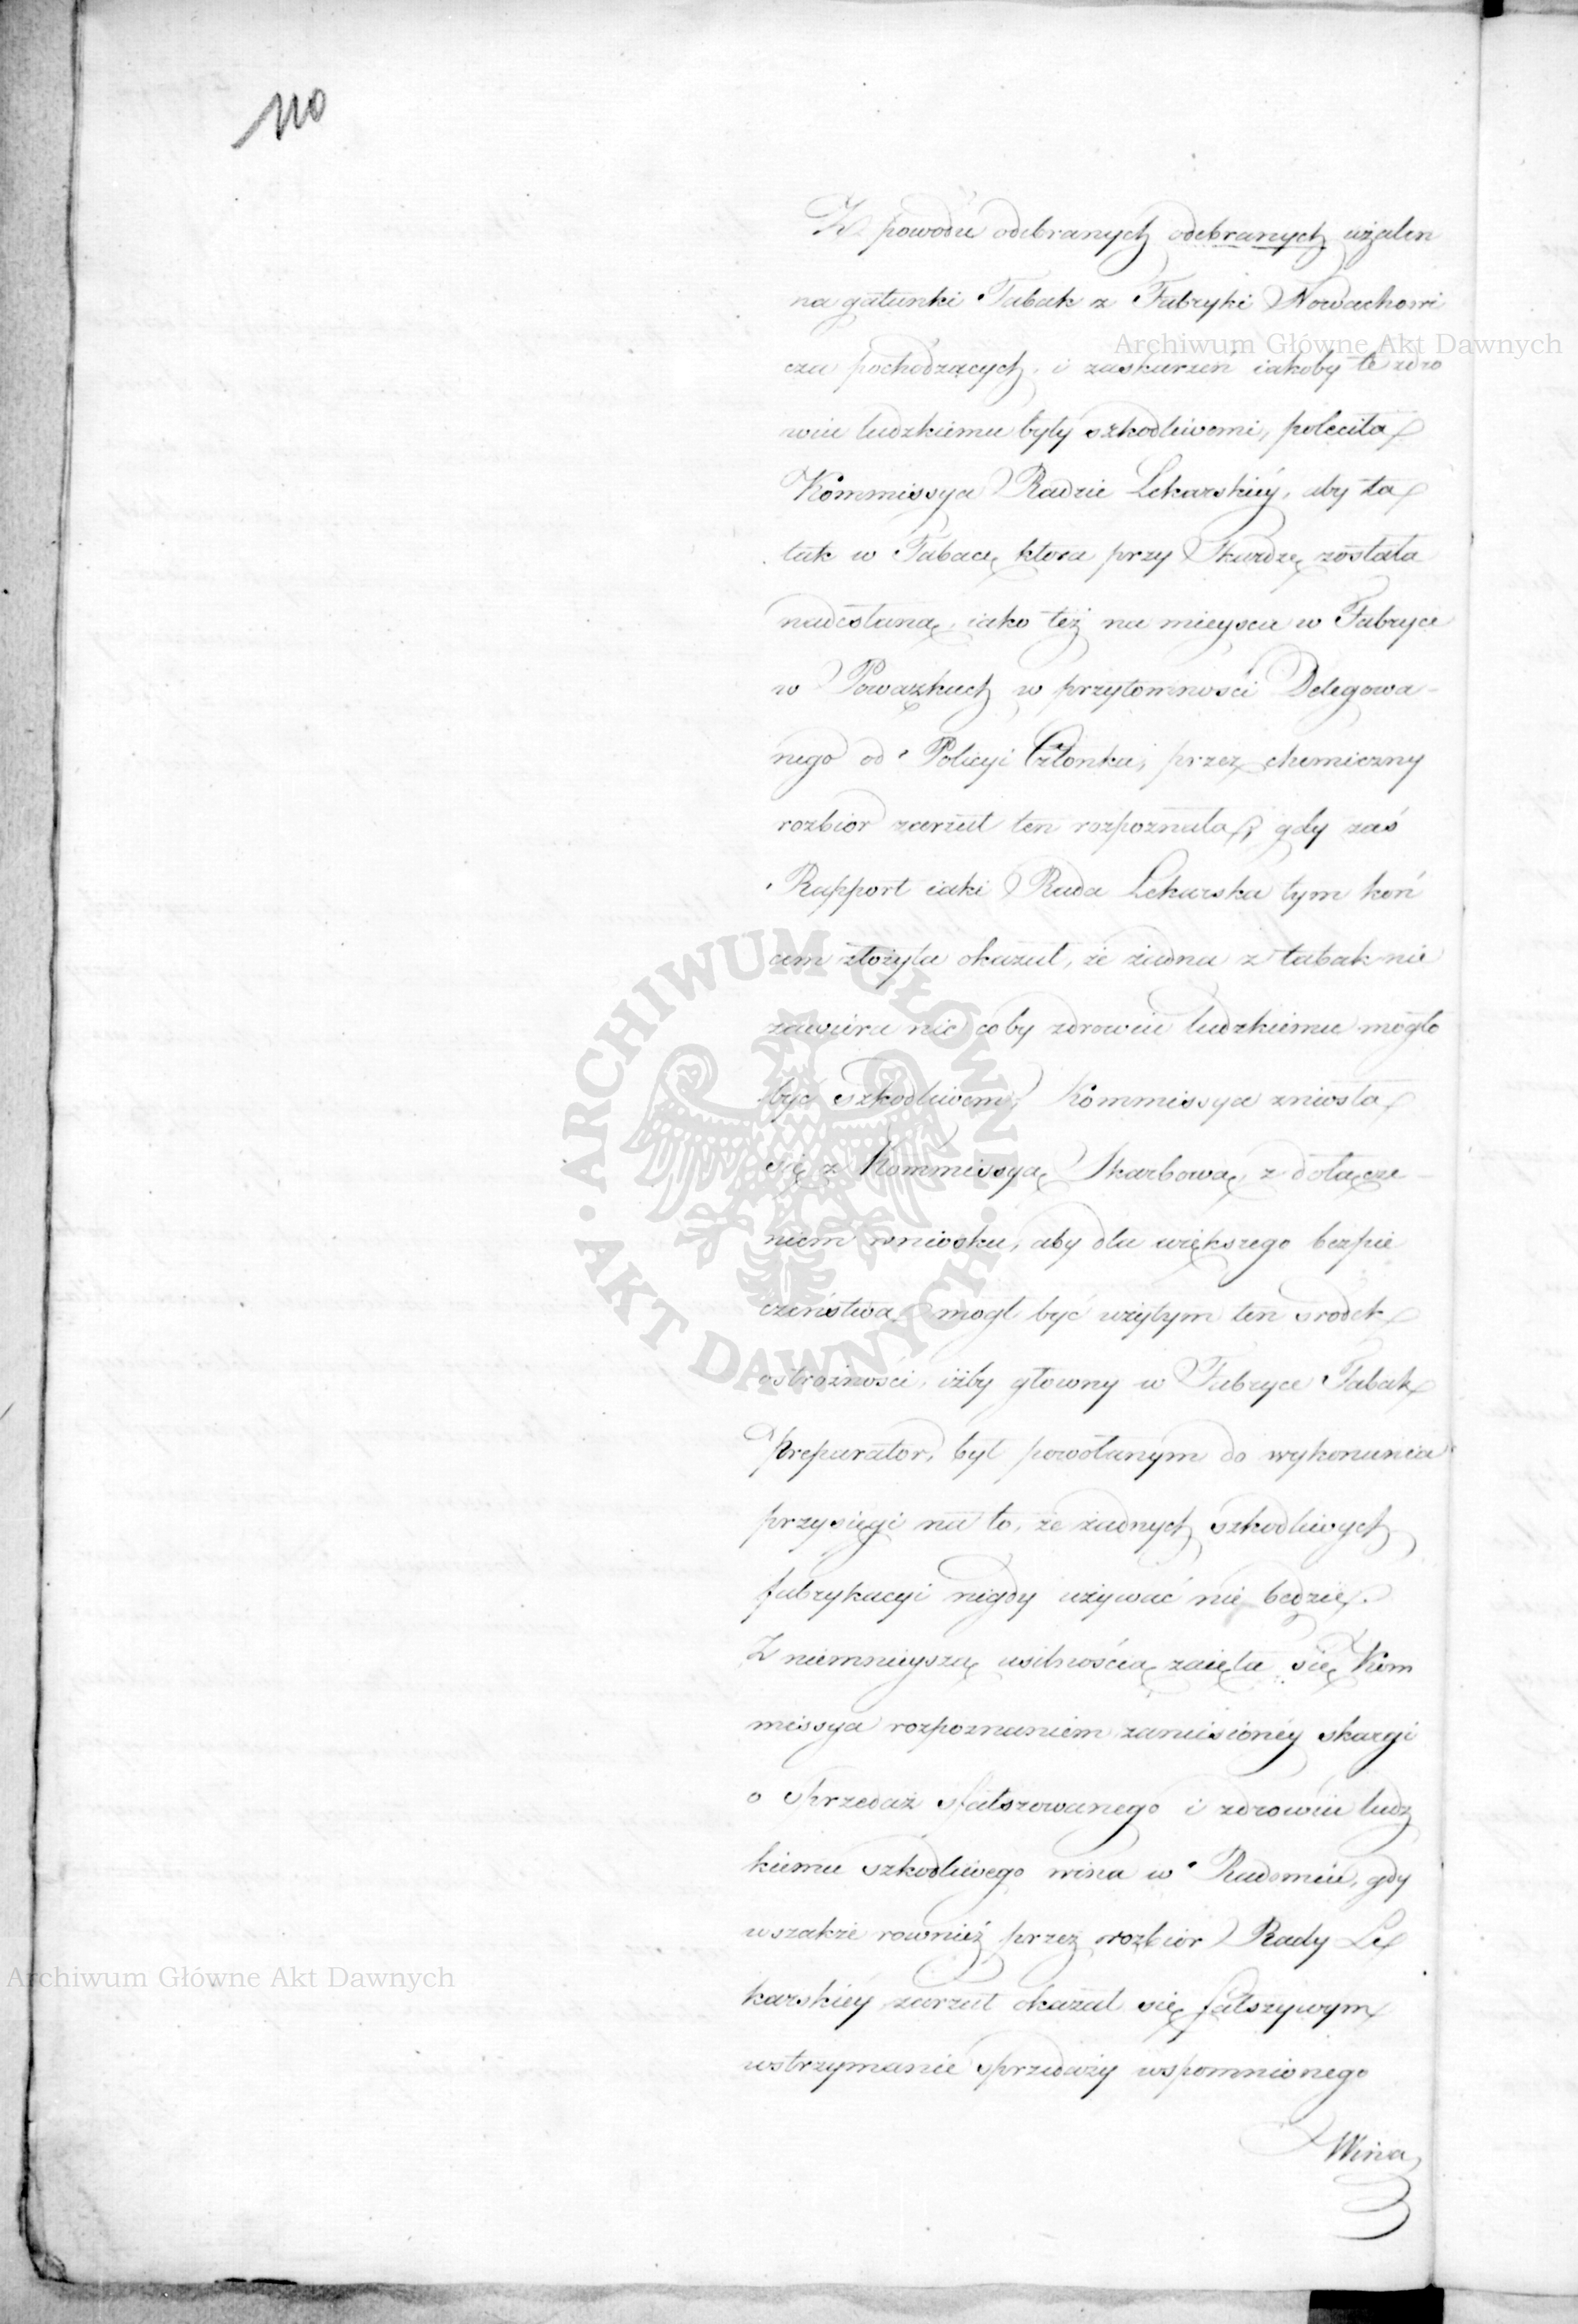 110
Z powodu odebranych odebranych użaleń
na gatunki Tabak z Fabryki Nowachowi
cza pochodzących, i zaskarzeń iakoby te zdro
wiu ludzkiemu były szkodliwemi, poleciła
Kommissya Radzie Lekarskiéy, aby ta
tak w Tabacę ktora przy Skardze została
nadesłaną, iako też na mieyscu w Fabryce
w Powązkach w przytomności Delegowa-
nego od Policyi Członka, przez chemiczny
rozbior zarzut ten rozpoznała, gdy zaś
Rapport iaki Rada Lekarska tym koń
cem złożyła okazał, że żadna z tabak nie
zawiera nic coby zdrowiu ludzkiemu mogło
być szkodliwem, Kommissya zniosła
się z Kommissyą Skarbową, z dołącze-
niem wniosku, aby dla większego bezpie
czeństwa mogł być użytym ten srodek
ostrożności, iżby głowny w Fabryce Tabak
Preparator, był powołanym do wykonania
przysięgi na to, że żadnych szkodliwych
fabrykacyi nigdy używać nie będzie.
Z niemnieyszą usilnością zaięła się Kom
missya rozpoznaniem zaniesionéy skargi
o Przedaż sfałszowanego i zdrowiu ludz
kiemu szkodliwego wina w Radomiu, gdy
wszakże rownież przez rozbior Rady Le
karskiéy zarzut okazał się fałszywym
wstrzymanie sprzedaży wspomnionego
Wina
Archiwum Główne Akt Dawnych
ARCHIWUM GŁÓWNE · AKT DAWNYCH ·
Archiwum Główne Akt Dawnych